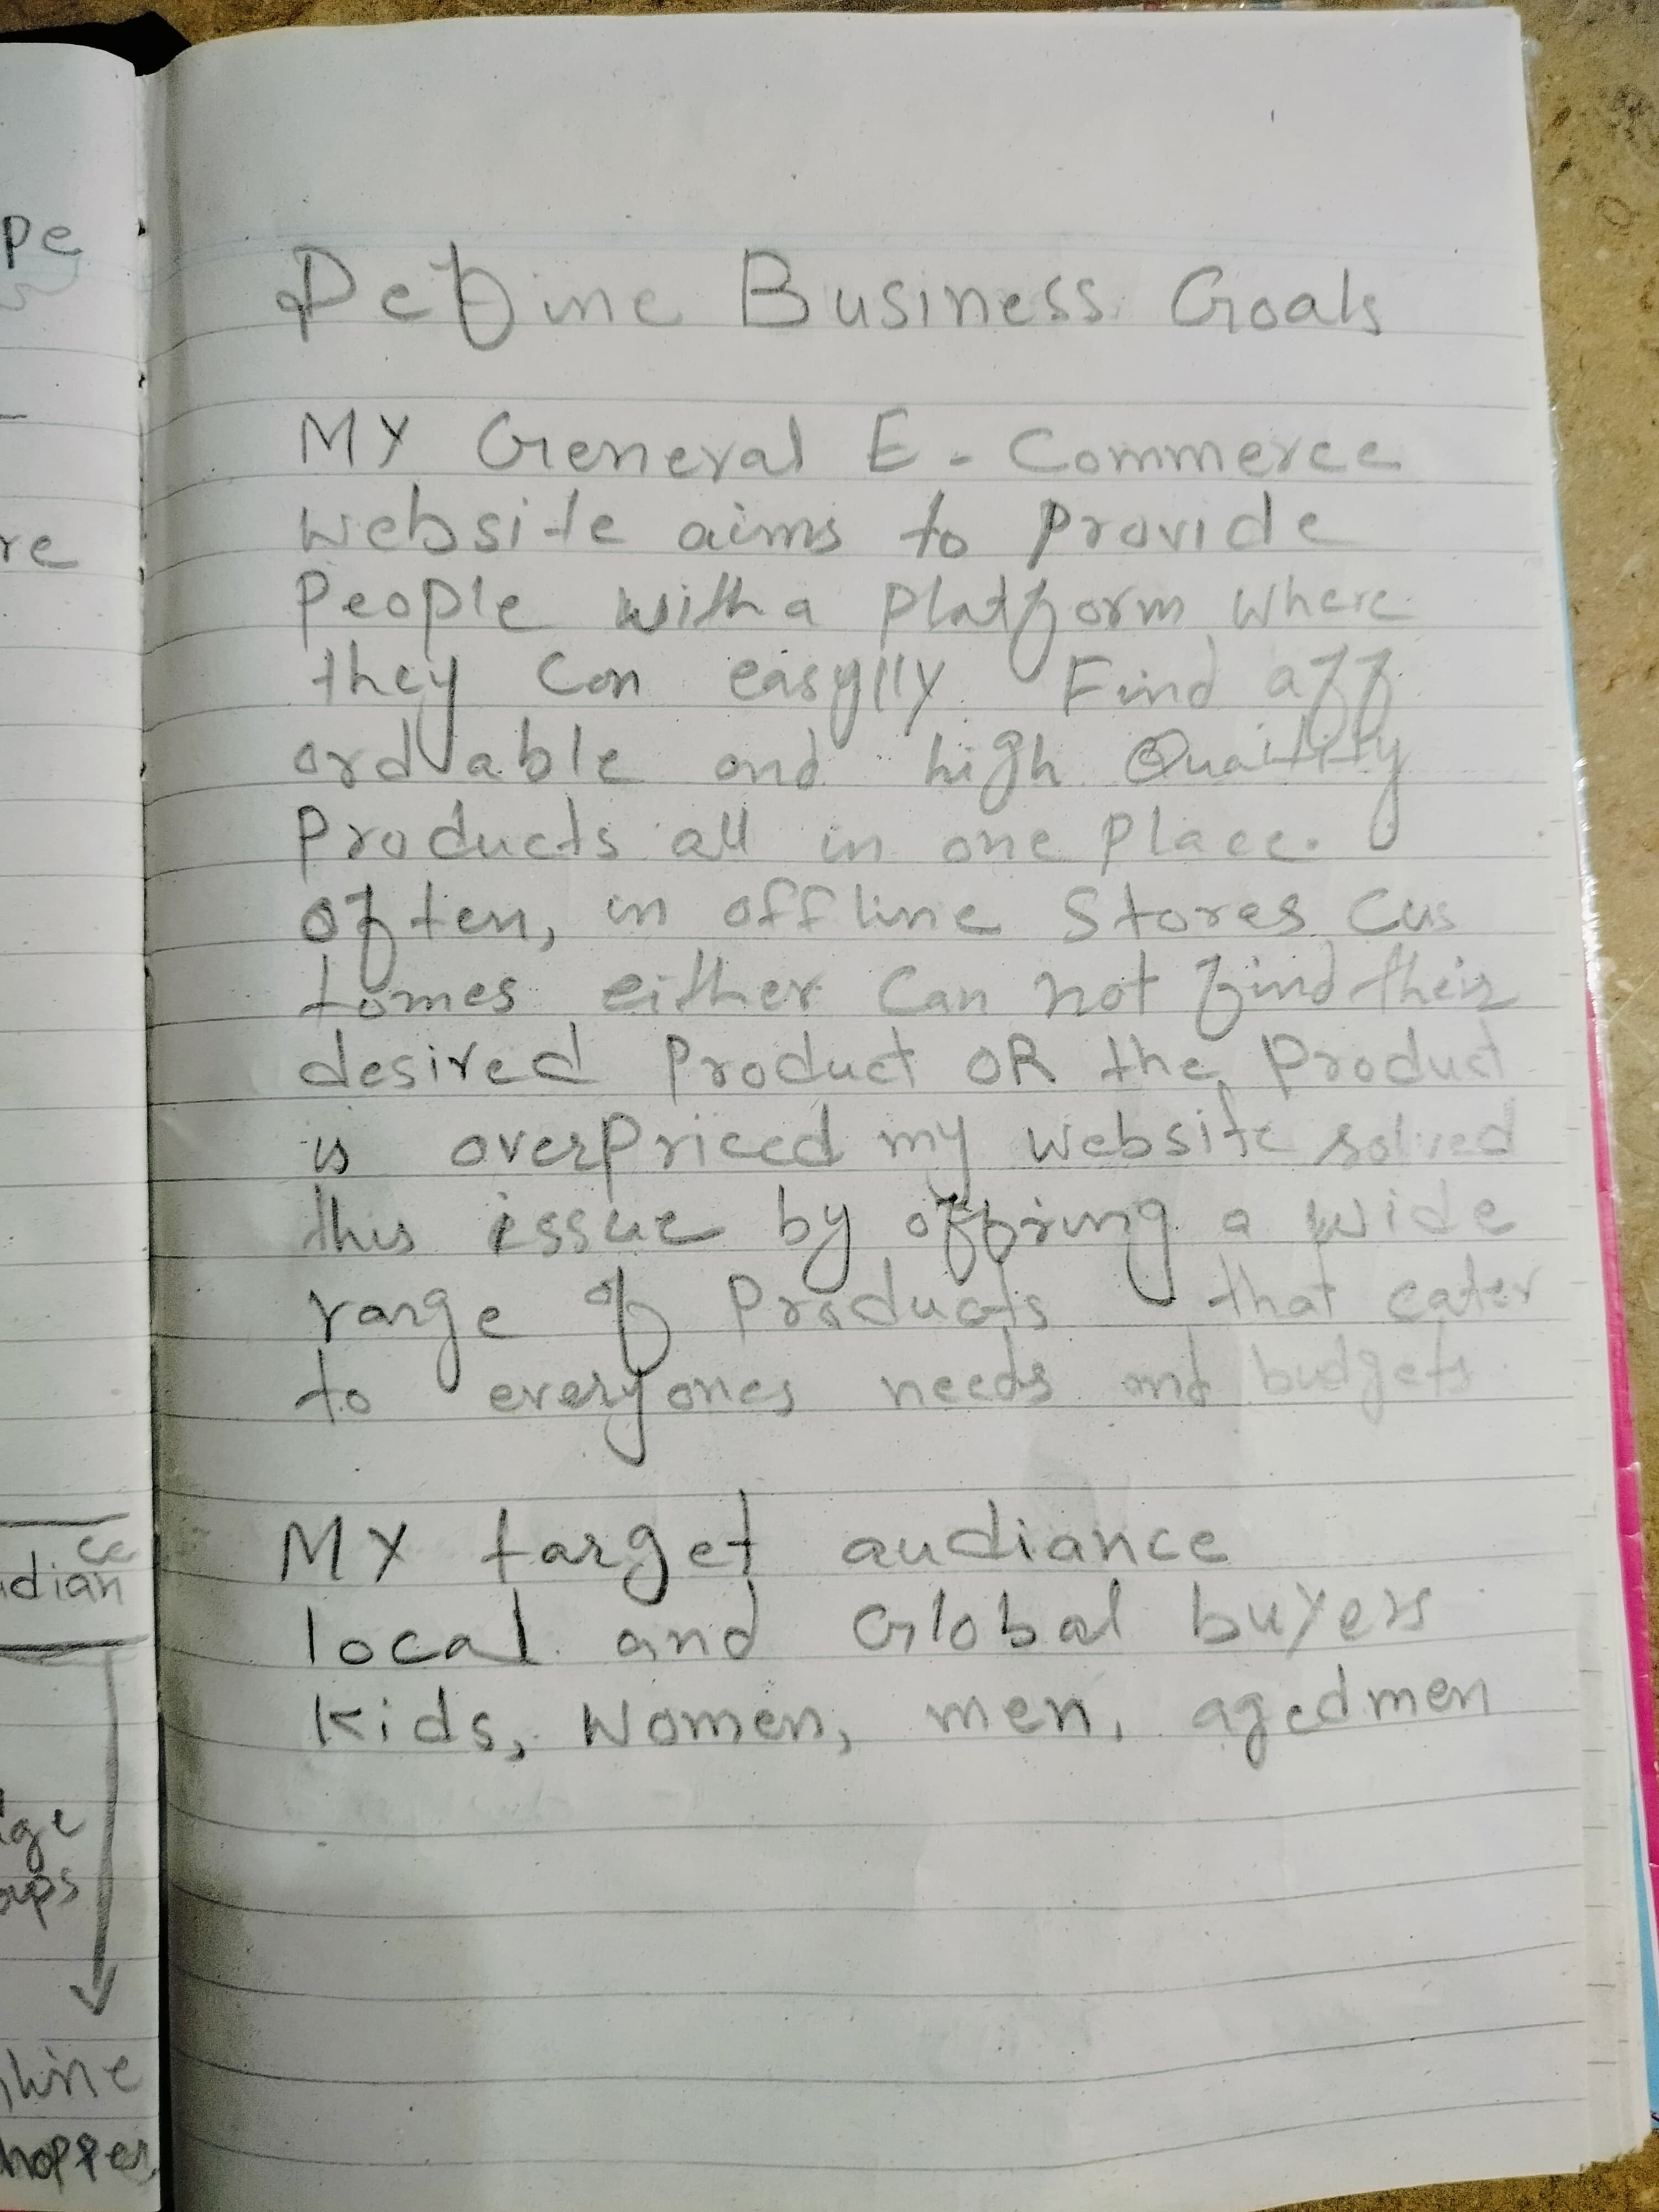 Define Business Goals
MY General E-Commerce
website aims to Provide
People with a Platform where
they Can easylly Find aff
ordable and high Quality
Products all in one Place.
often, in offline Stores Cus
tomes either Can not find their
desired Product OR the Product
is overPriced my website solved
this issue by offring a wide
range of Products that cater
to everyones needs and budgets
MY target audiance
local and Global buyers
Kids, Women, men, agedmen
pe
re
ce
udian
age
oups
nline
hopper